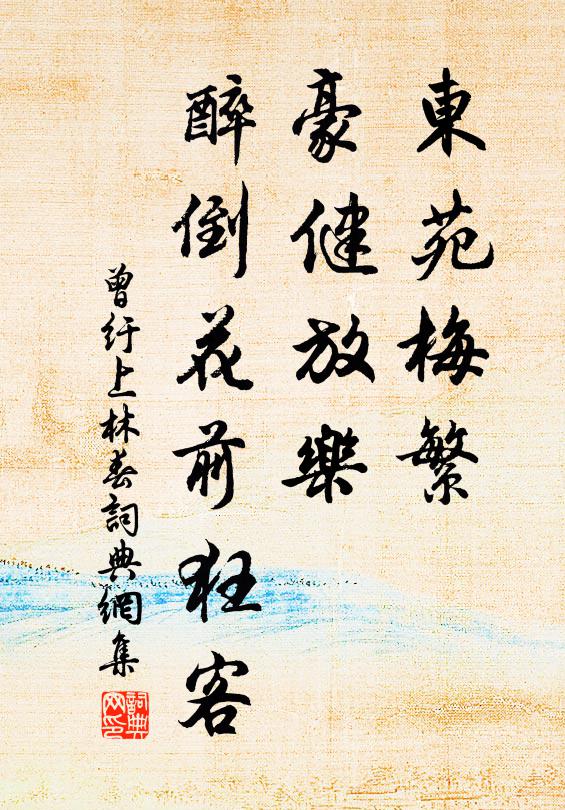 東苑梅繁
豪健放樂
醉倒花前狂客
曾紆上林春詞典網集
詞典
网印